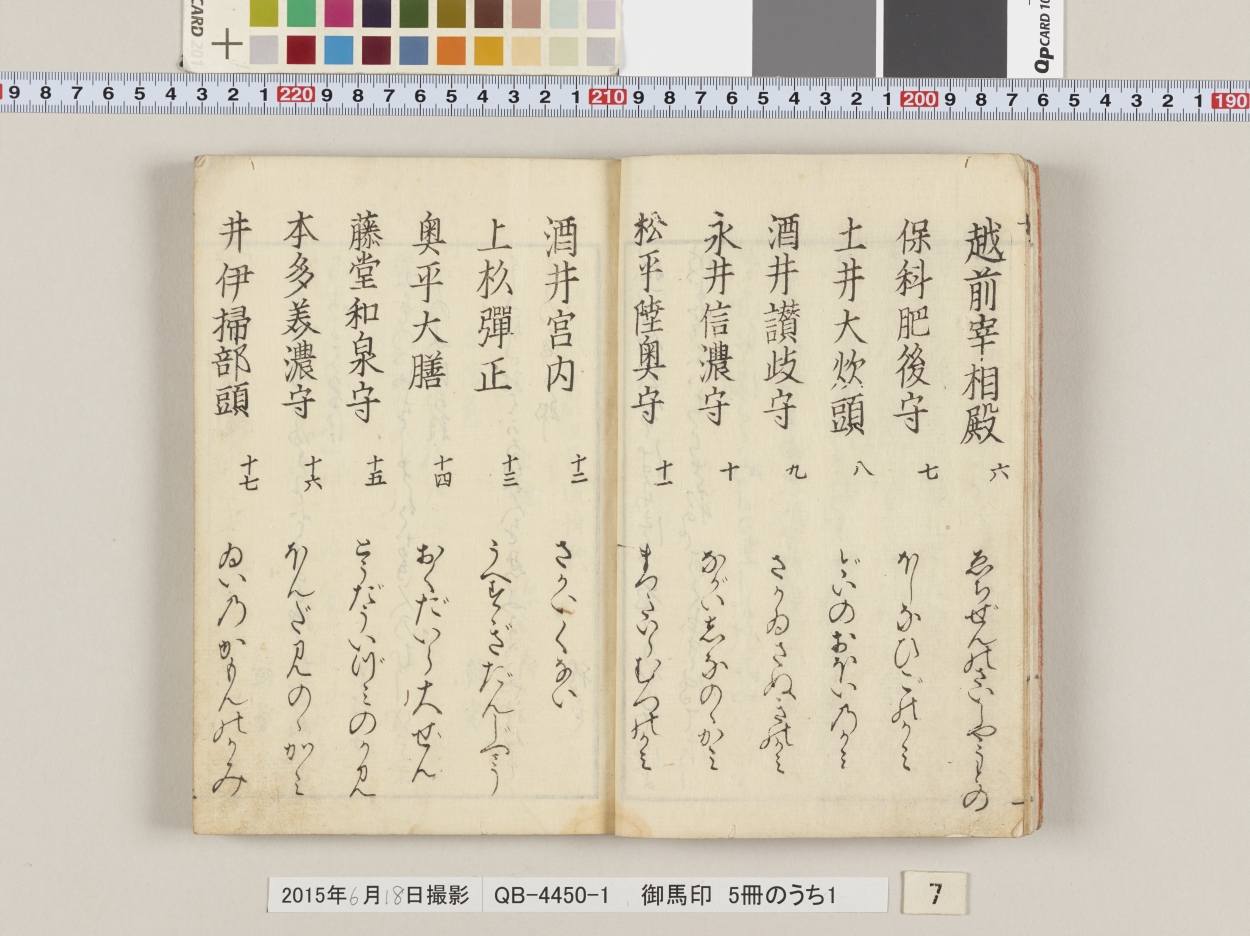 CARD 201
QPCARD 10
9 8 7 6 5 4 3 2 1 220 9 8 7 6 5 4 3 2 1 210 9 8 7 6 5 4 3 2 1 200 9 8 7 6 5 4 3 2 1 190
越前宰相殿 六 ゑちぜんのさいしやうとの
保科肥後守 七 ほしなひごのかミ
土井大炊頭 八 どいのおほい乃かミ
酒井讃岐守 九 さかゐさぬきのかミ
永井信濃守 十 ながいしなのゝかミ
松平陸奥守 十一 まつたいらむつのかミ
酒井宮内 十二 さかいくない
上杦彈正 十三 うへすぎだんじやう
奥平大膳 十四 おくだいら大ぜん
藤堂和泉守 十五 とうだういづミのかミ
本多美濃守 十六 ほんだミのゝかミ
井伊掃部頭 十七 ゐい乃かもんのかみ
2015年6月18日撮影 QB-4450-1 御馬印 5冊のうち1
7